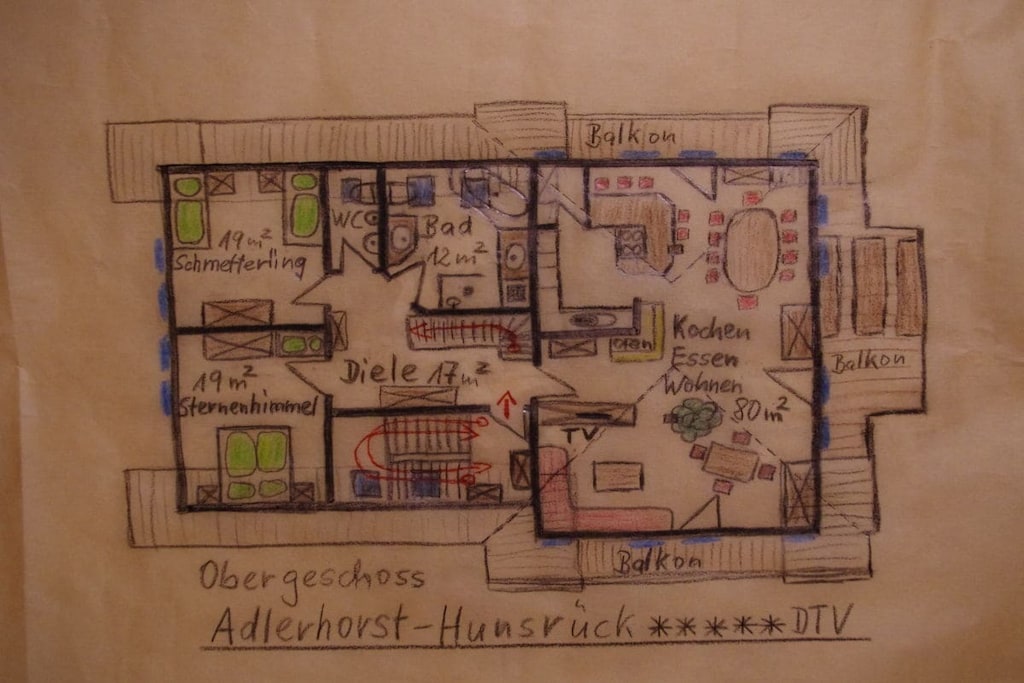 Balkon
WC
Bad
12 m²
19 m²
Schmetterling
Kochen
Essen
Wohnen
80 m²
Ofen
Balkon
19 m²
Sternenhimmel
Diele 17 m²
TV
Balkon
Obergeschoss
Adlerhorst-Hunsrück ***** DTV